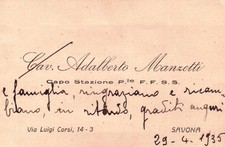 Cav. Adalberto Manzetti
Capo Stazione P.le F.F.S.S.
e famiglia, ringraziano e ricam-
biano, in ritardo, graditi auguri
Via Luigi Corsi, 14-3
SAVONA
29-4.1935